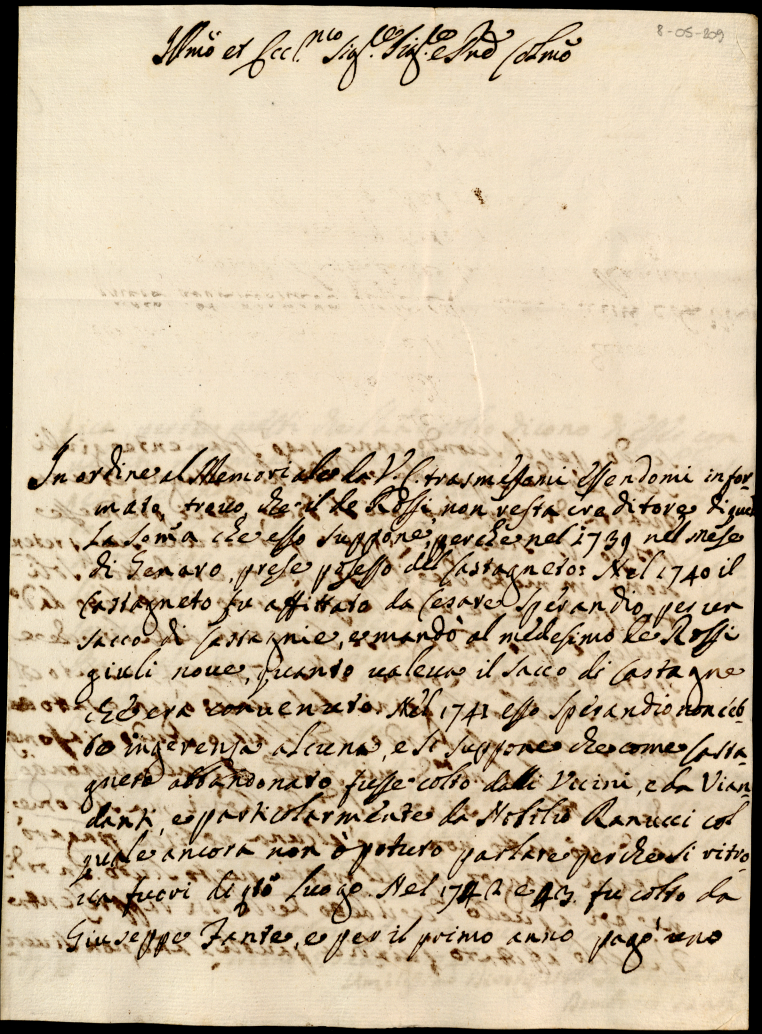 8-05-209
Illmo et Eccl.mo Sig.re Sig.re e Pnd Colmo
In ordine al Memoriale da V.E. trasmessami essendomi infor-
mato trovo, che il de Rossi non resta creditore di quel
La soma che esso suppone, perche nel 1739 nel mese
di Genaro, prese posesso del Castagneto: Nel 1740 il
Castagneto fu affittato da Cesare Sperandio per un
sacco di Castagnie, e mandò al medesimo de Rossi
giuli nove, quanto valeva il sacco di Castagne
che era convenuto. Nel 1741 esso Sperandio non ceb-
be ingerenza alcuna, e si suppone che come Casta-
gneto abbandonato fusse colto dalli Vicini, e da Vian-
danti, e particolarmente da Nobilio Ranucci col
quale ancora non ò potuto parlare perche si ritro-
va fuori di qto Luogo. Nel 1742 e 43. fu colto da
Giuseppe Fante, e per il primo anno pagò uno